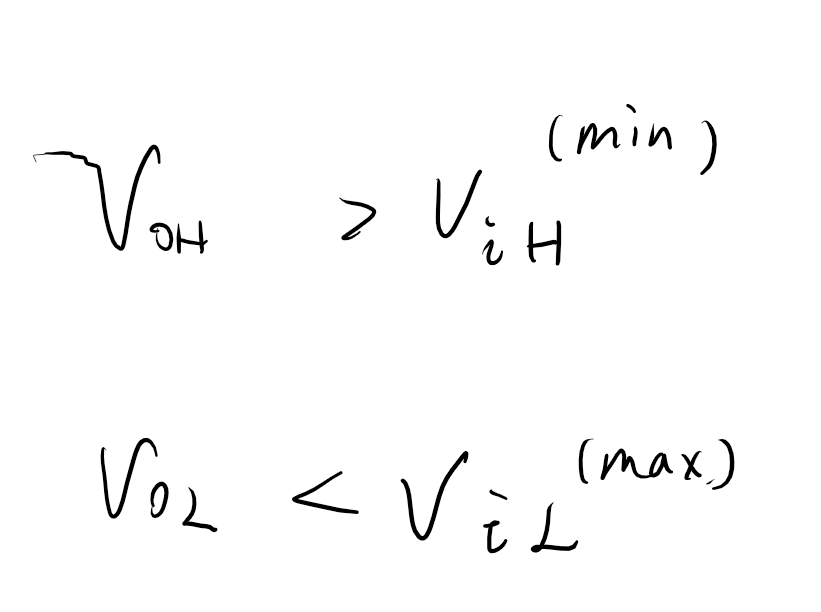 V_OH > V_iH^(min)
V_OL < V_iL^(max)